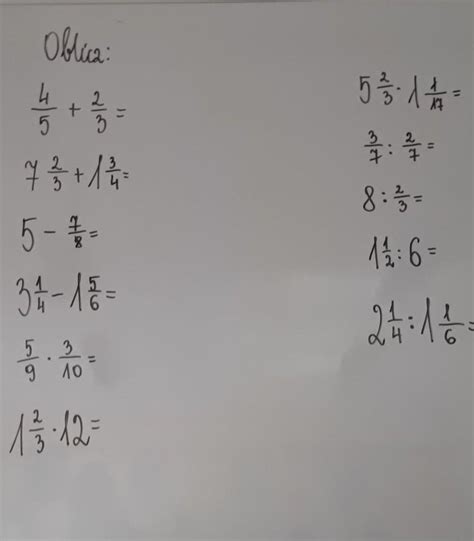 Oblicz:
4/5 + 2/3 =
7 2/3 + 1 3/4 =
5 - 7/8 =
3 1/4 - 1 5/6 =
5/9 · 3/10 =
1 2/3 · 12 =
5 2/3 · 1 1/17 =
3/7 : 2/7 =
8 : 2/3 =
1 1/2 : 6 =
2 1/4 : 1 1/6 =